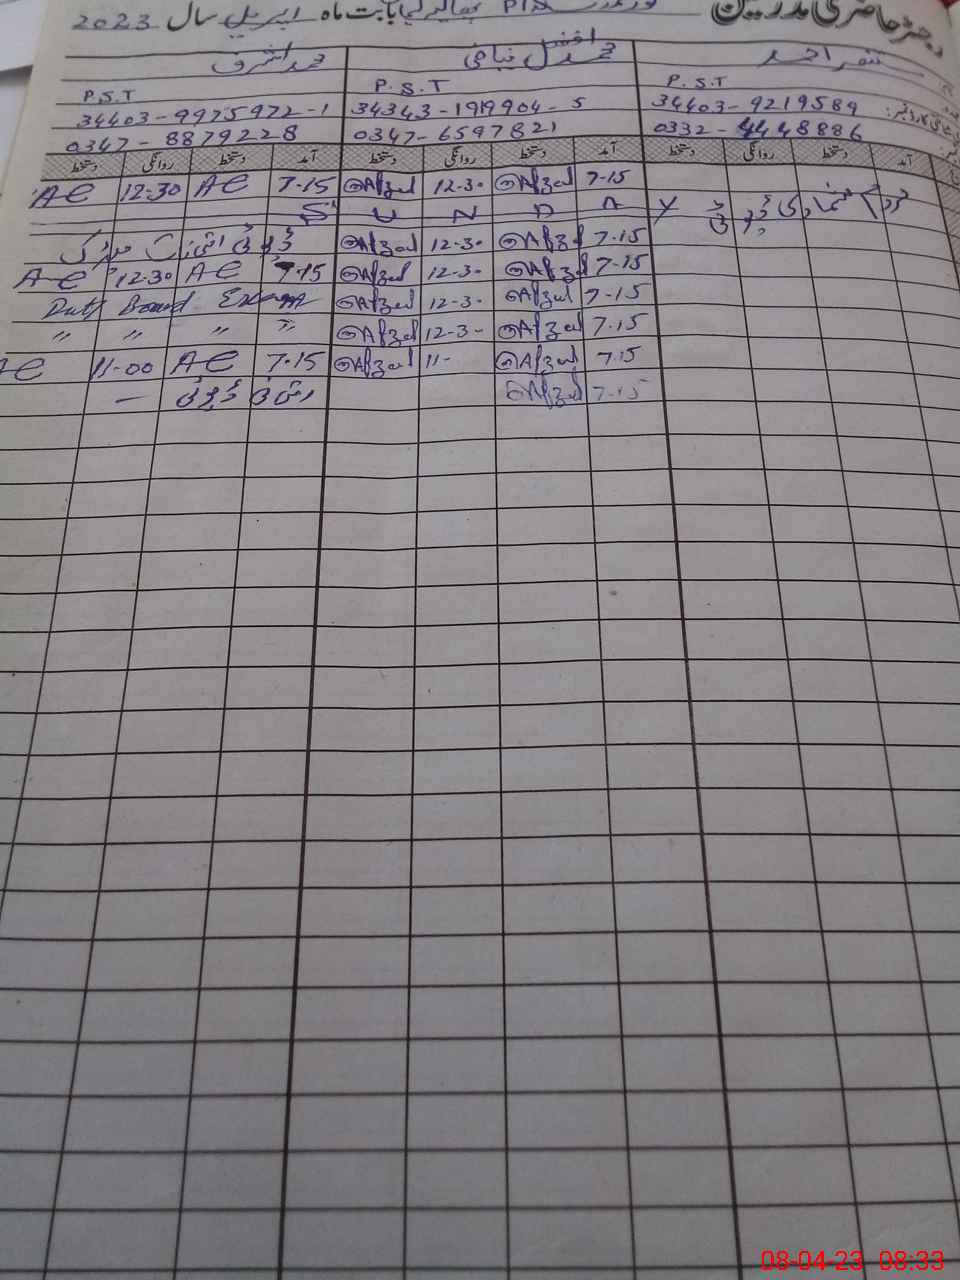 رجسٹر حاضری مدرسین بابت ماہ اپریل سال 2023
محمد افضل نیازی محمد اشرف
P.S.T P.S.T P.S.T
34403-9219589 34343-1919904-5 34403-9975972-1
0332-4448886 0347-6597821 0347-8879228
آمد دستخط روانگی دستخط آمد دستخط روانگی دستخط آمد دستخط روانگی دستخط
7-15 Afzal 12-30 Afzal 7-15 AC 12-30 AC
S U N D A Y
7-15 Afzal 12-30 Afzal
7-15 Afzal 12-30 Afzal 7-15 AC 12-30 AC
7-15 Afzal 12-30 Afzal Duty Board Exam
7-15 Afzal 12-30 Afzal " " " "
7-15 Afzal 11- Afzal 7-15 AC 11-00 AC
7-15 Afzal
08-04-23 08:33